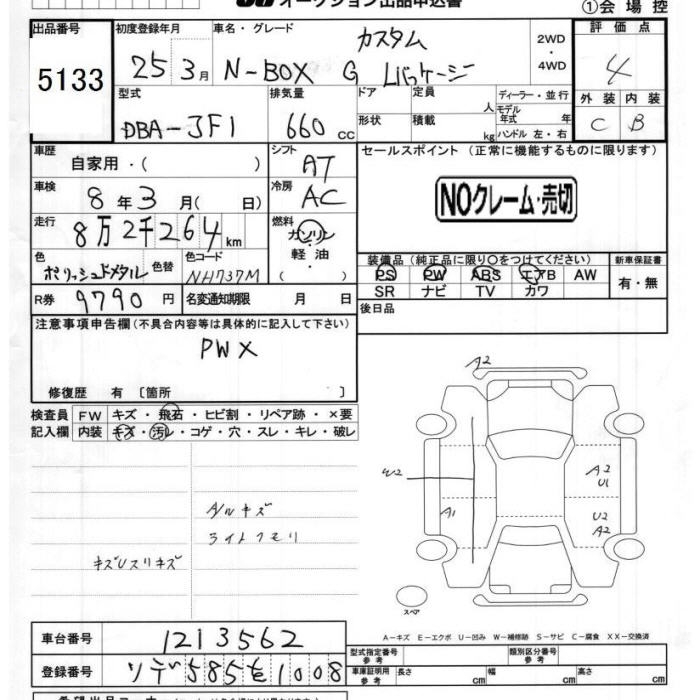 オークション出品申込書
①会場控
出品番号
5133
初度登録年月
25 3月
車名・グレード
カスタム
N-BOX G Lパッケージ
2WD
・
4WD
評価点
4
外装 内装
C B
型式
DBA-JF1
排気量
660 cc
ドア 定員 人
形状 積載 kg
ディーラー・並行
モデル年式 年
ハンドル 左・右
車歴
自家用・( )
シフト
AT
セールスポイント (正常に機能するものに限ります)
NOクレーム・売切
車検
8年3月( 日)
冷房
AC
走行
8万2千264km
燃料
ガソリン
軽油
・( )
色
ポリッシュドメタル
色替
色コード
NH737M
装備品(純正品に限り○をつけてください)
PS PW ABS エアB AW
SR ナビ TV カワ
新車保証書
有・無
R券 9790円
名変通知期限 月 日
後日品
注意事項申告欄(不具合内容等は具体的に記入して下さい)
PW X
修復歴 有 〔箇所 〕
検査員
記入欄
FW キズ・飛石・ヒビ割・リペア跡・×要
内装 キズ・汚レ・コゲ・穴・スレ・キレ・破レ
A/Wキズ
ライトクモリ
キズUスリキズ
A2
W2
A1
A2
U1
U2
A2
スペア
A-キズ E-エクボ U-凹み W-補修跡 S-サビ C-腐食 XX-交換済
車台番号 1213562
型式指定番号
参考
類別区分番号
参考
登録番号
585 を 1008
車庫証明用
参考
長さ cm 幅 cm 高さ cm